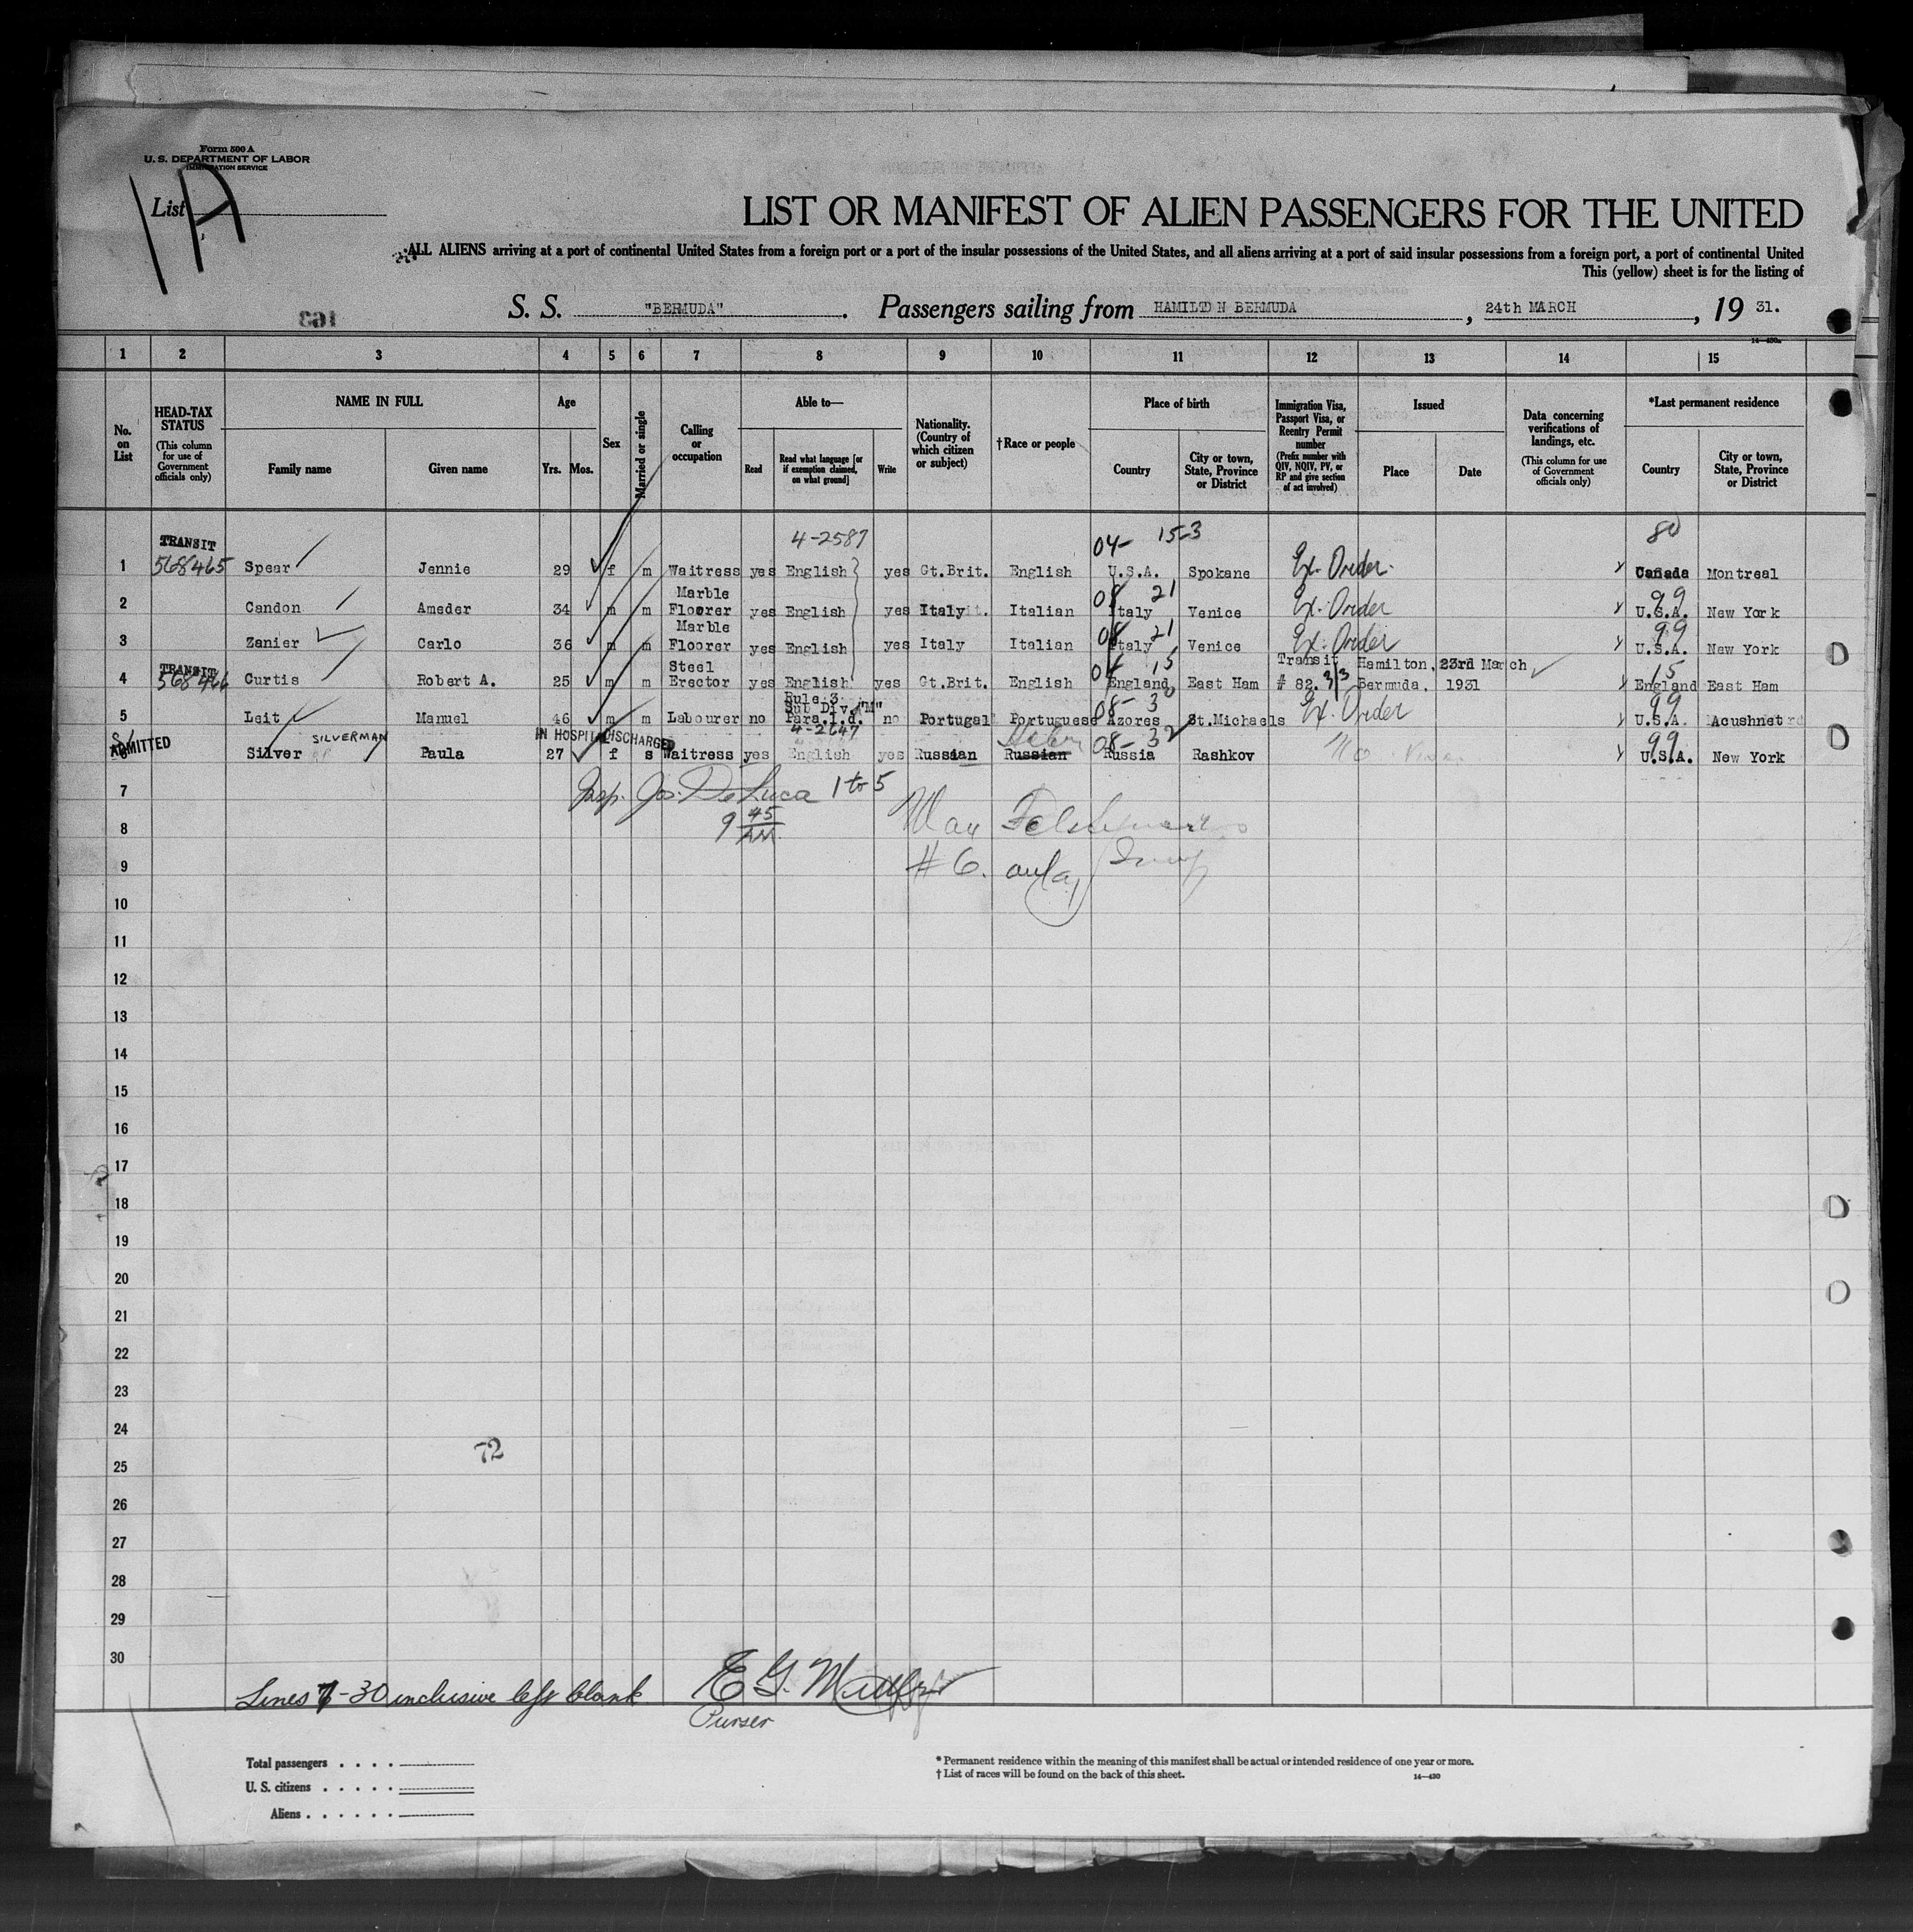 Form 500 A
U. S. DEPARTMENT OF LABOR
IMMIGRATION SERVICE
List 1A
LIST OR MANIFEST OF ALIEN PASSENGERS FOR THE UNITED
ALL ALIENS arriving at a port of continental United States from a foreign port or a port of the insular possessions of the United States, and all aliens arriving at a port of said insular possessions from a foreign port, a port of continental United
This (yellow) sheet is for the listing of
S. S. "BERMUDA". Passengers sailing from HAMILTON BERMUDA, 24th MARCH, 19 31.
163
14—430a
1 2 3 4 5 6 7 8 9 10 11 12 13 14 15
No. on List
HEAD-TAX STATUS (This column for use of Government officials only)
NAME IN FULL Family name Given name
Age Yrs. Mos.
Sex
Married or single
Calling or occupation
Able to— Read Read what language [or if exemption claimed, on what ground] Write
Nationality. (Country of which citizen or subject)
†Race or people
Place of birth Country City or town, State, Province or District
Immigration Visa, Passport Visa, or Reentry Permit number (Prefix number with QIV, NQIV, PV, or RP and give section of act involved)
Issued Place Date
Data concerning verifications of landings, etc. (This column for use of Government officials only)
*Last permanent residence Country City or town, State, Province or District
TRANSIT 4-2587 04- 15-3 80
1 568465 Spear Jennie 29 f m Waitress yes English yes Gt.Brit. English U.S.A. Spokane Ex. Order. Canada Montreal
Marble 08 21 99
2 Candon Ameder 34 m m Floorer yes English yes Italy Italian Italy Venice Ex. Order U.S.A. New York
Marble 08 21 99
3 Zanier Carlo 36 m m Floorer yes English yes Italy Italian Italy Venice Ex. Order U.S.A. New York
TRANSIT Steel 04 15 Transit Hamilton, 23rd March 15
4 568466 Curtis Robert A. 25 m m Erector yes English yes Gt.Brit. English England East Ham # 82. 3/3 Bermuda. 1931 England East Ham
Rule 3. Sub Div. "M" 08- 3 99
5 Leit Manuel 46 m m Labourer no Para.1.d. no Portugal Portuguese Azores St.Michaels Ex. Order U.S.A. Acushnet
ADMITTED SILVERMAN IN HOSPITAL DISCHARGED 4-2647 08- 32 99
6 Silver Paula 27 f s Waitress yes English yes Russian Russian Russia Rashkov No Visa U.S.A. New York
7 Insp. Jos. DeLuca 1 to 5
8 9 45 AM
9 # 6. only Insp
10
11
12
13
14
15
16
17
18
19
20
21
22
23
24
72
25
26
27
28
29
30
Lines 7-30 inclusive left blank
Purser
Total passengers
U. S. citizens
Aliens
* Permanent residence within the meaning of this manifest shall be actual or intended residence of one year or more.
† List of races will be found on the back of this sheet. 14—430